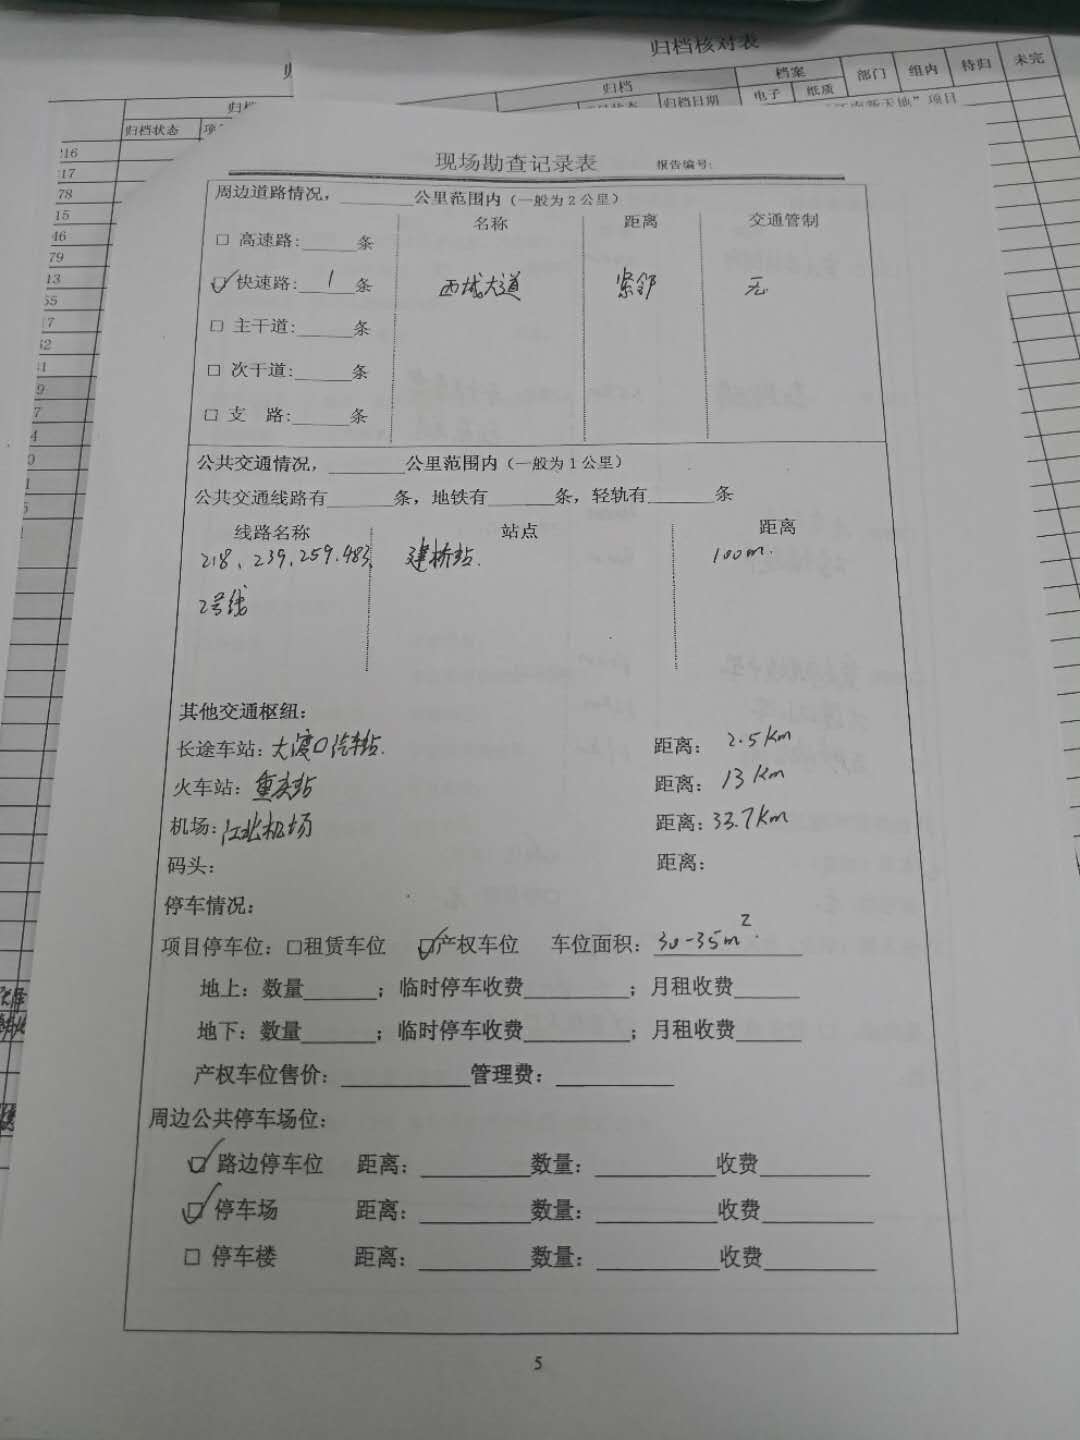 归档核对表
归档 档案 部门 组内 待归 未完
归档日期 电子 纸质
归档状态
216
217
78
15
46
79
13
55
17
52
现场勘查记录表 报告编号:
周边道路情况，______公里范围内（一般为2公里）
名称 距离 交通管制
□ 高速路:_____条
☑ 快速路: 1 条 西城大道 紧邻 无
□ 主干道:_____条
□ 次干道:_____条
□ 支 路:_____条
公共交通情况，______公里范围内（一般为1公里）
公共交通线路有_____条，地铁有_____条，轻轨有_____条
线路名称 站点 距离
218、239、259、483 建桥站. 100m.
2号线
其他交通枢纽：
长途车站：大渡口汽车站. 距离： 2.5km
火车站：重庆站 距离： 13km
机场：江北机场 距离：33.7km
码头： 距离：
停车情况：
项目停车位：□租赁车位 ☑产权车位 车位面积：30-35m².
地上：数量______；临时停车收费________；月租收费_____
地下：数量______；临时停车收费________；月租收费_____
产权车位售价：__________管理费：_________
周边公共停车场位：
☑ 路边停车位 距离：_________数量：_________收费_________
☑ 停车场 距离：_________数量：_________收费_________
□ 停车楼 距离：_________数量：_________收费_________
5